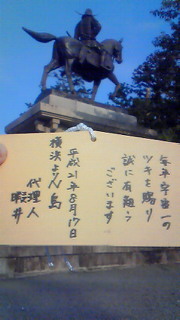 毎年宇宙一の
ツキを賜り
誠に有難う
ございます
平成21年8月17日
横浜
代理人
井